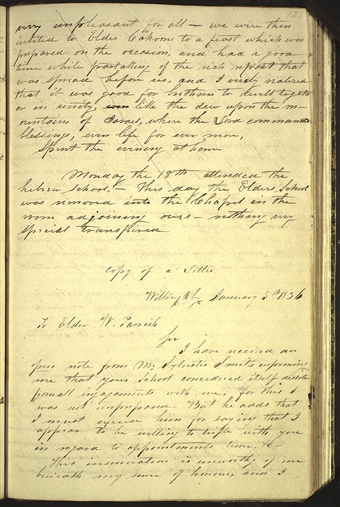 very unpleasant for all — we were then
invited to Elder Cahoons to a feast which was
prepared on the occasion, and had a good
time while partaking of the rich repast that
was spread before us, and I verily realized
that it was good for brethren to dwell together
in unity, like the dew upon the m-
ountains of Israel, where the Lord commands
blessings, even life for ever more,
Spent the evening at home
Monday the 18th attended the
hebrew School, — This day the Elders School
was removed into the Chapel in the
room adjoining ours — nothing very
special transpired
Copy of a Letter
Willoughby January 5th 1836
To Elder W. Parrish
Sir
I have received an
your note from Mr Sylvester Smith informing
me that your School considered itself dissolved
from all ingagements with me, for this I
was not unprepared. But he adds that
I must excuse him for saying that I
appear to be willing to trifle with you
in regard to appointments time, &c—
This insinuation is unworthy of me
beneath my sense of honour, and I